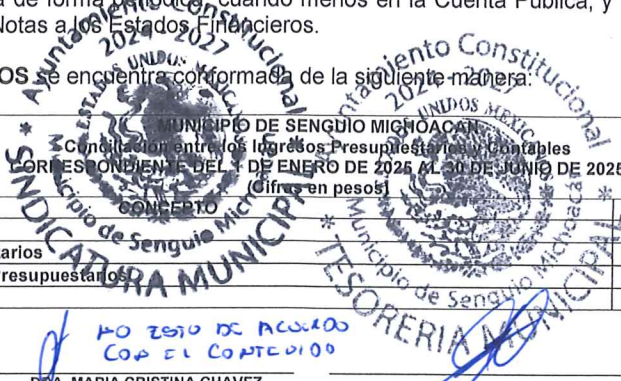 a de forma periódica, cuando menos en la Cuenta Pública, y
Notas a los Estados Financieros.
OS se encuentra conformada de la siguiente manera:
MUNICIPIO DE SENGUIO MICHOACAN
Conciliación entre los Ingresos Presupuestarios y Contables
CORRESPONDIENTE DEL 1 DE ENERO DE 2025 AL 30 DE JUNIO DE 2025
(Cifras en pesos)
CONCEPTO
tarios
Presupuestarios
Ayuntamiento Constitucional
2024 - 2027
ESTADOS UNIDOS MEXICANOS
Municipio de Senguio Michoacán
SINDICATURA MUNICIPAL
Ayuntamiento Constitucional
2024 - 2027
UNIDOS MEXIC
Municipio de Senguio Michoacán
TESORERIA MUNICIPAL
NO ESTO DE ACUERDO
CON EL CONTENIDO
DRA. MARIA CRISTINA CHAVEZ